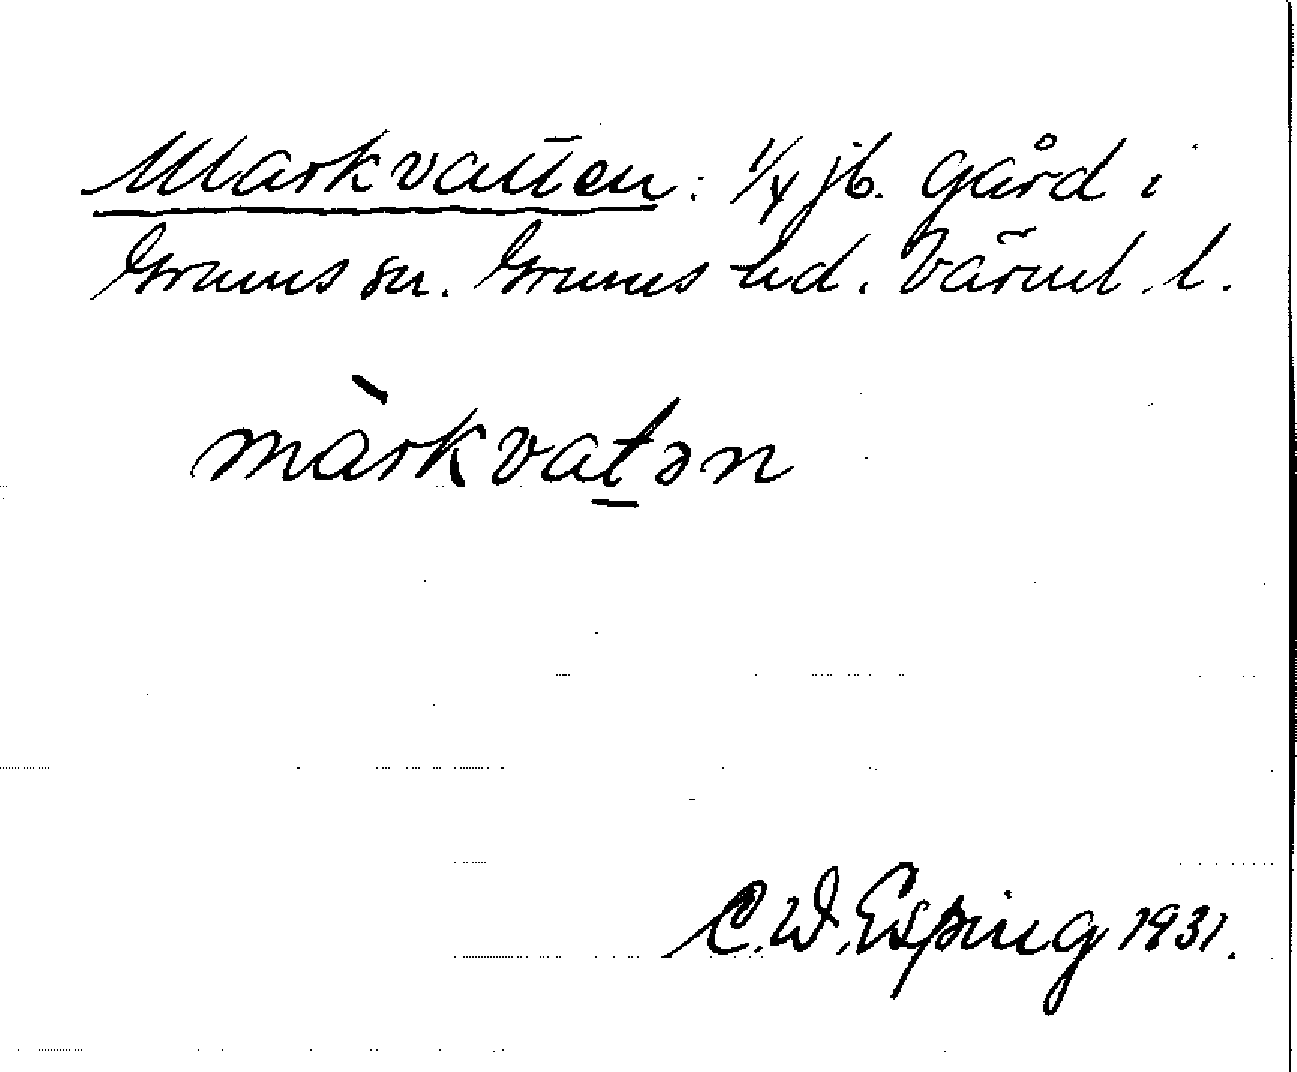 Markvatten: 1/4 jb. gård i
Grums sn. Grums hd. Värml. l.
màrkvat̲ən
C.W. Esping 1931.